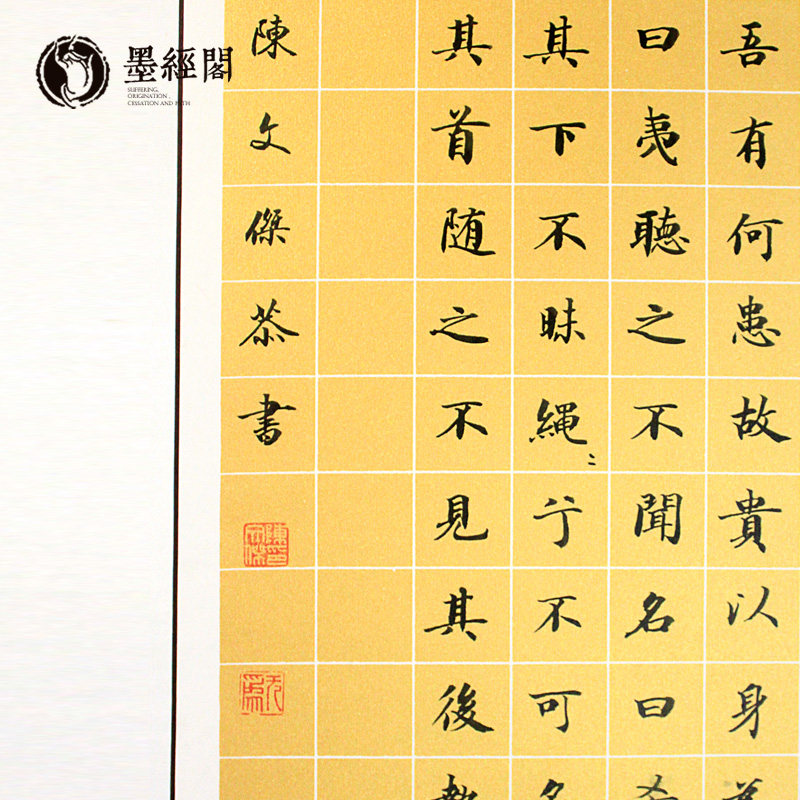 墨經閣
SUFFERING,
ORIGINATION,
CESSATION AND PATH
吾有何患故貴以身
曰夷聴之不聞名曰
其下不昧縄〻兮不可
其首随之不見其後
陳文傑恭書